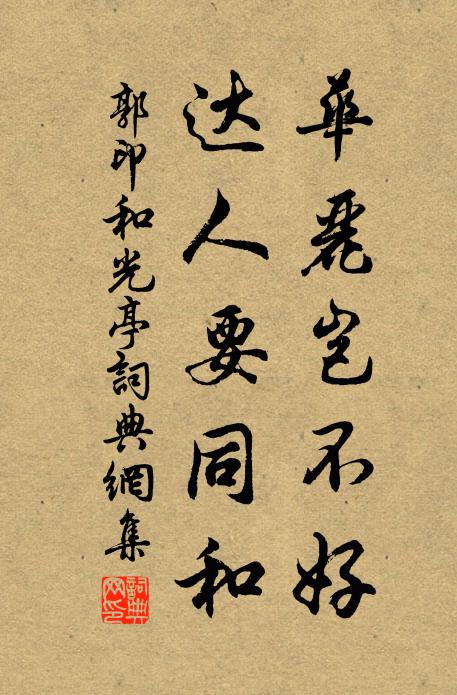 華麗豈不好
达人要同和
郭印和光亭詞典網集
詞典网印